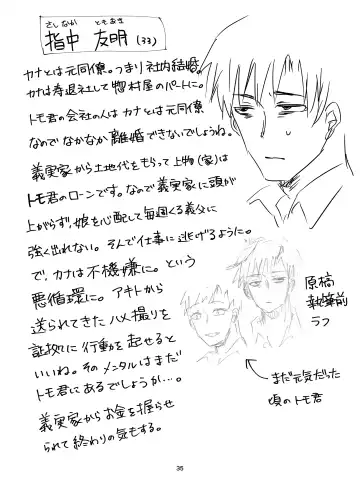 さしなか ともあき
指中 友明 (33)
カナとは元同僚。つまり社内結婚。
カナは寿退社して惣村屋のパートに。
トモ君の会社の人はカナとは元同僚
なのでなかなか離婚できないでしょうね。
義実家から土地代をもらって上物(家)は
トモ君のローンです。なので義実家に頭が
上がらず、娘を心配して毎週くる義父に
強く出れない。そんで仕事に逃げるように。
で、カナは不機嫌に。という
悪循環に。アキトから
送られてきたハメ撮りを
証拠に行動を起せると
いいね。そのメンタルはまだ
トモ君にあるでしょうか…。
義実家からお金を握らせ
られて終わりの気もする。
原稿
執筆前
ラフ
まだ元気だった
頃のトモ君
35